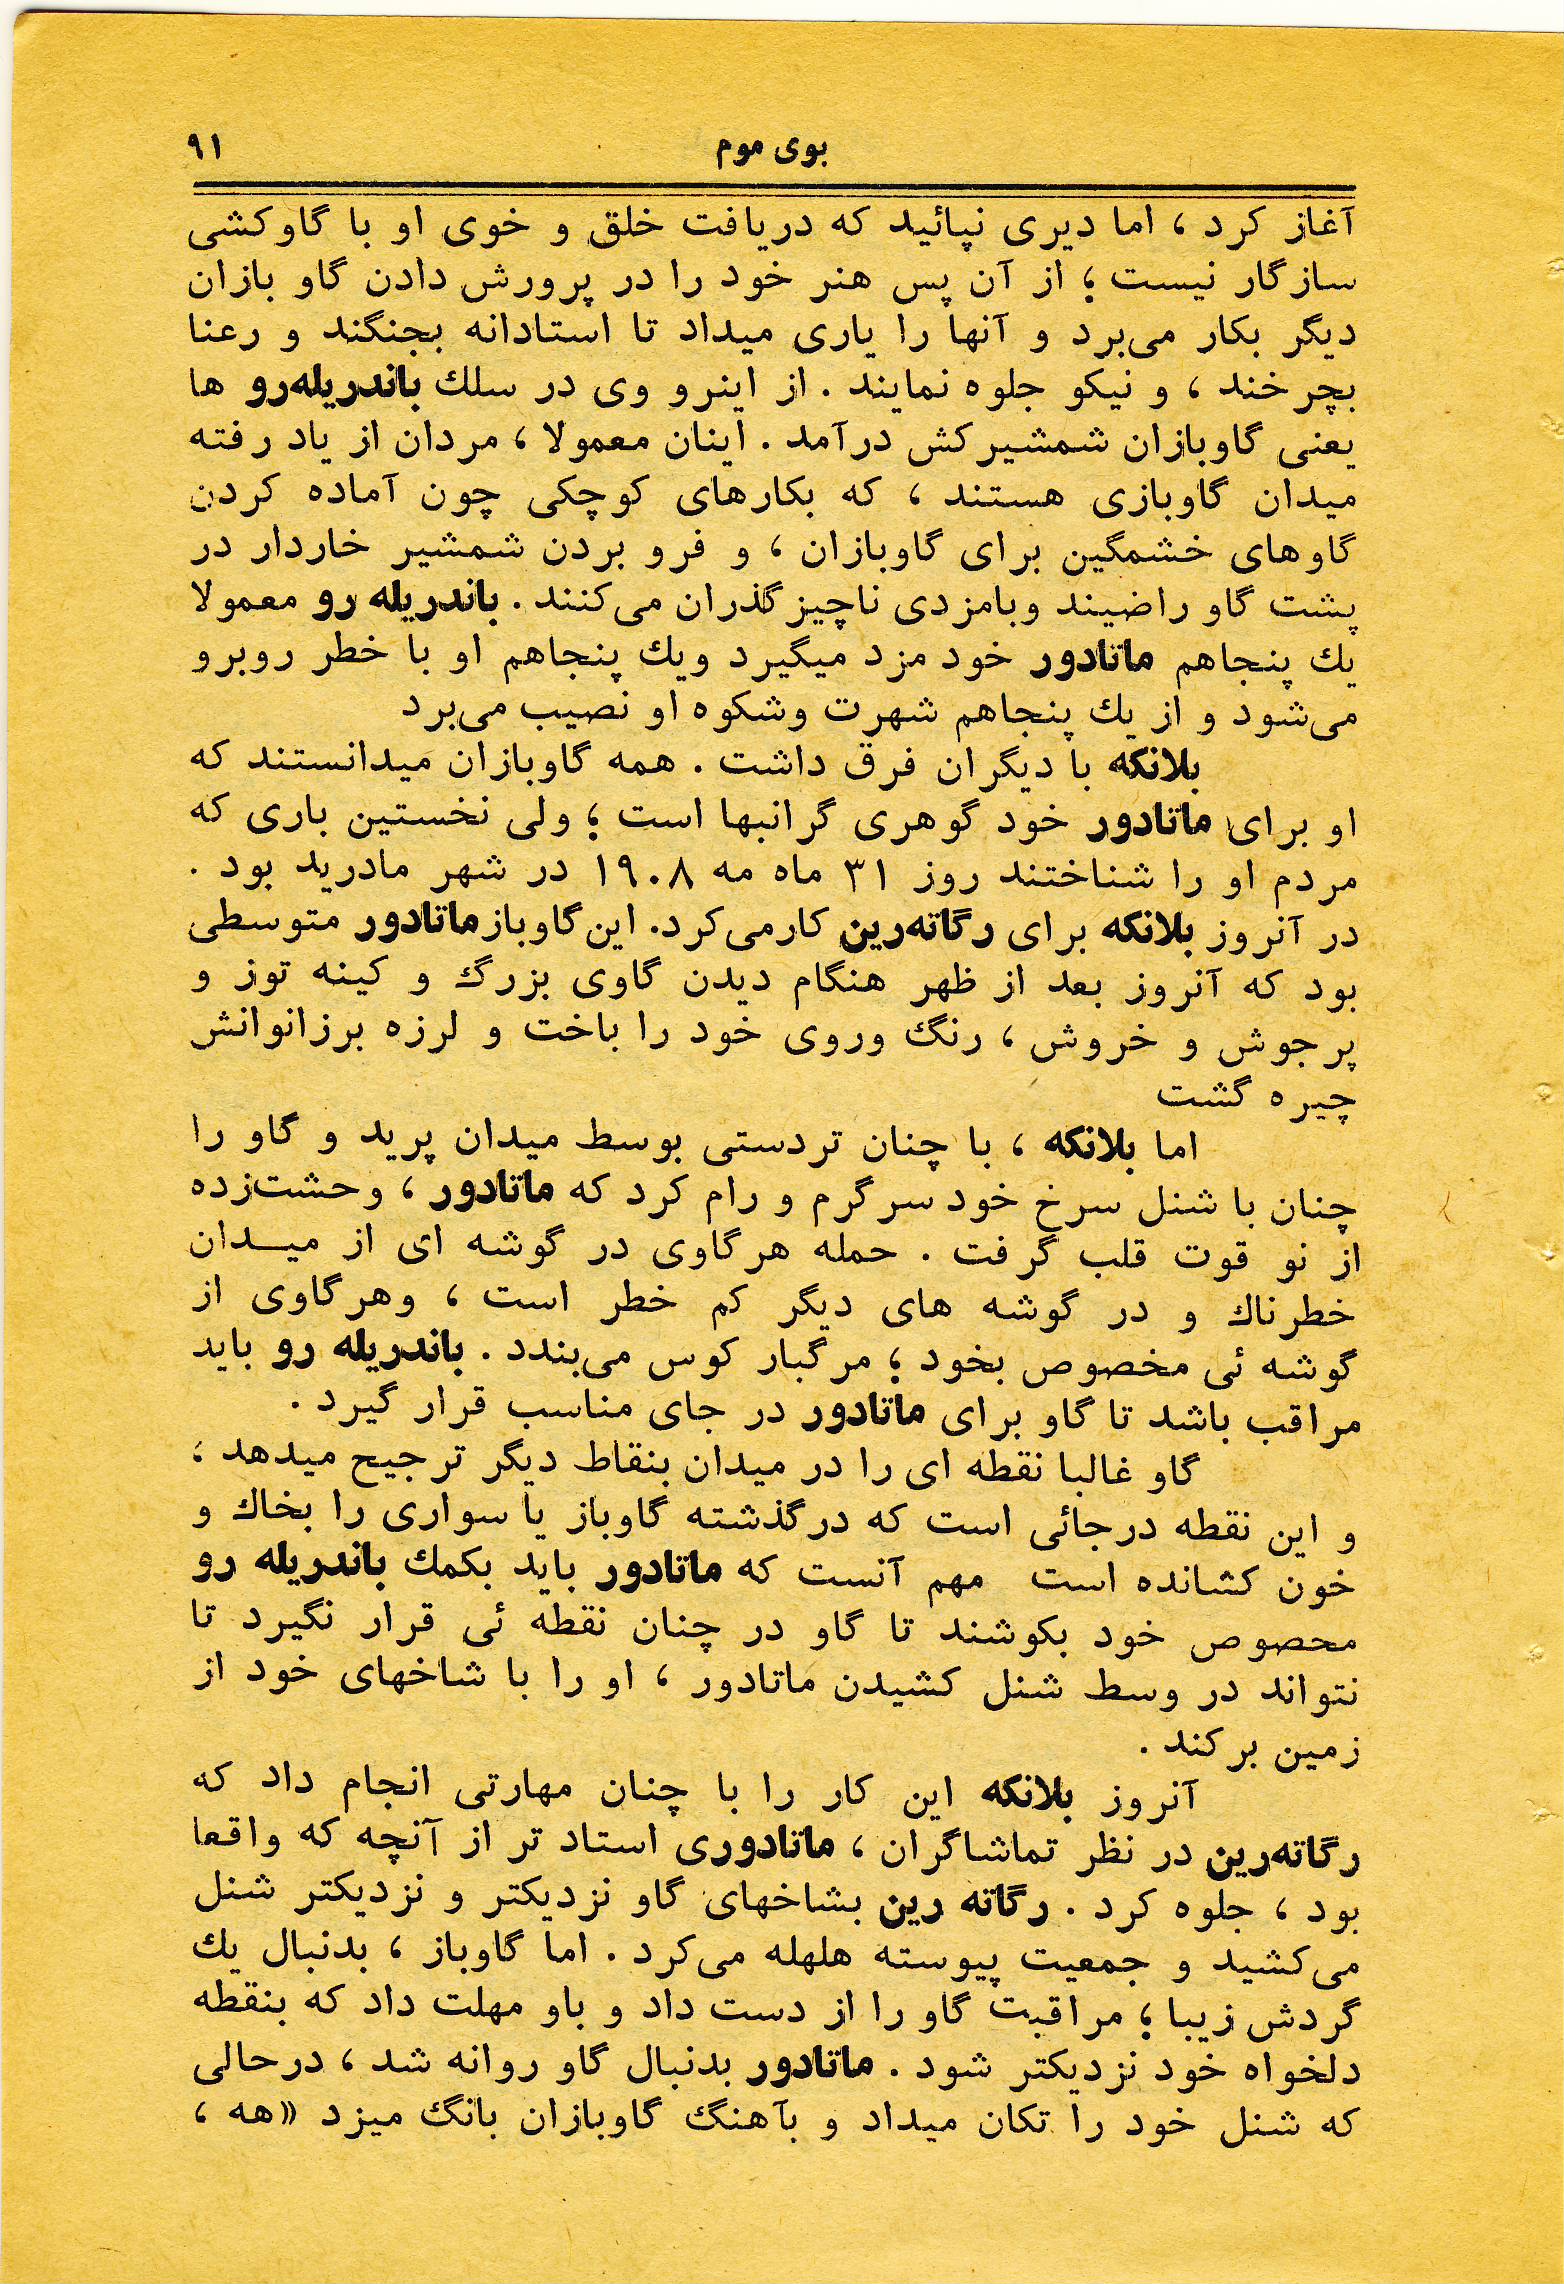 بوی موم ۹۱
آغاز کرد ، اما دیری نپائید که دریافت خلق و خوی او با گاوکشی
سازگار نیست ؛ از آن پس هنر خود را در پرورش دادن گاو بازان
دیگر بکار می‌برد و آنها را یاری میداد تا استادانه بجنگند و رعنا
بچرخند ، و نیکو جلوه نمایند . از اینرو وی در سلك باندریله‌رو ها
یعنی گاوبازان شمشیرکش درآمد . اینان معمولا ، مردان از یاد رفته
میدان گاوبازی هستند ، که بکارهای کوچکی چون آماده کردن
گاوهای خشمگین برای گاوبازان ، و فرو بردن شمشیر خاردار در
پشت گاو راضیند وبامزدی ناچیز گذران می‌کنند . باندریله رو معمولا
یك پنجاهم ماتادور خود مزد میگیرد ویك پنجاهم او با خطر روبرو
می‌شود و از یك پنجاهم شهرت وشکوه او نصیب می‌برد
بلانکه با دیگران فرق داشت . همه گاوبازان میدانستند که
او برای ماتادور خود گوهری گرانبها است ؛ ولی نخستین باری که
مردم او را شناختند روز ۳۱ ماه مه ۱۹۰۸ در شهر مادرید بود .
در آنروز بلانکه برای رگاته‌رین کارمی‌کرد. این گاوباز ماتادور متوسطی
بود که آنروز بعد از ظهر هنگام دیدن گاوی بزرگ و کینه توز و
پرجوش و خروش ، رنگ وروی خود را باخت و لرزه برزانوانش
چیره گشت
اما بلانکه ، با چنان تردستی بوسط میدان پرید و گاو را
چنان با شنل سرخ خود سرگرم و رام کرد که ماتادور ، وحشت‌زده
از نو قوت قلب گرفت . حمله هرگاوی در گوشه ای از میــدان
خطرناك و در گوشه های دیگر کم خطر است ، وهرگاوی از
گوشه ئی مخصوص بخود ؛ مرگبار کوس می‌بندد . باندریله رو باید
مراقب باشد تا گاو برای ماتادور در جای مناسب قرار گیرد .
گاو غالبا نقطه ای را در میدان بنقاط دیگر ترجیح میدهد ،
و این نقطه درجائی است که درگذشته گاوباز یا سواری را بخاك و
خون کشانده است مهم آنست که ماتادور باید بکمك باندریله رو
محصوص خود بکوشند تا گاو در چنان نقطه ئی قرار نگیرد تا
نتواند در وسط شنل کشیدن ماتادور ، او را با شاخهای خود از
زمین برکند .
آنروز بلانکه این کار را با چنان مهارتی انجام داد که
رگاته‌رین در نظر تماشاگران ، ماتادوری استاد تر از آنچه که واقعا
بود ، جلوه کرد . رگاته رین بشاخهای گاو نزدیکتر و نزدیکتر شنل
می‌کشید و جمعیت پیوسته هلهله می‌کرد . اما گاوباز ، بدنبال یك
گردش زیبا ؛ مراقبت گاو را از دست داد و باو مهلت داد که بنقطه
دلخواه خود نزدیکتر شود . ماتادور بدنبال گاو روانه شد ، درحالی
که شنل خود را تکان میداد و بآهنگ گاوبازان بانگ میزد «هه ،